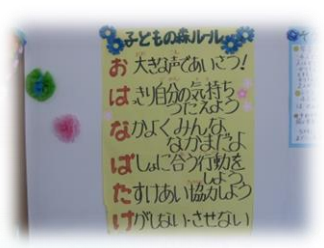 子どもの森ルール
お 大きな声であいさつ!
は っきり自分の気持ち
つたえよう
な かよくみんな
なかまだよ
ば しょに合う行動を
しよう
た すけあい協力しよう
け がしない・させない